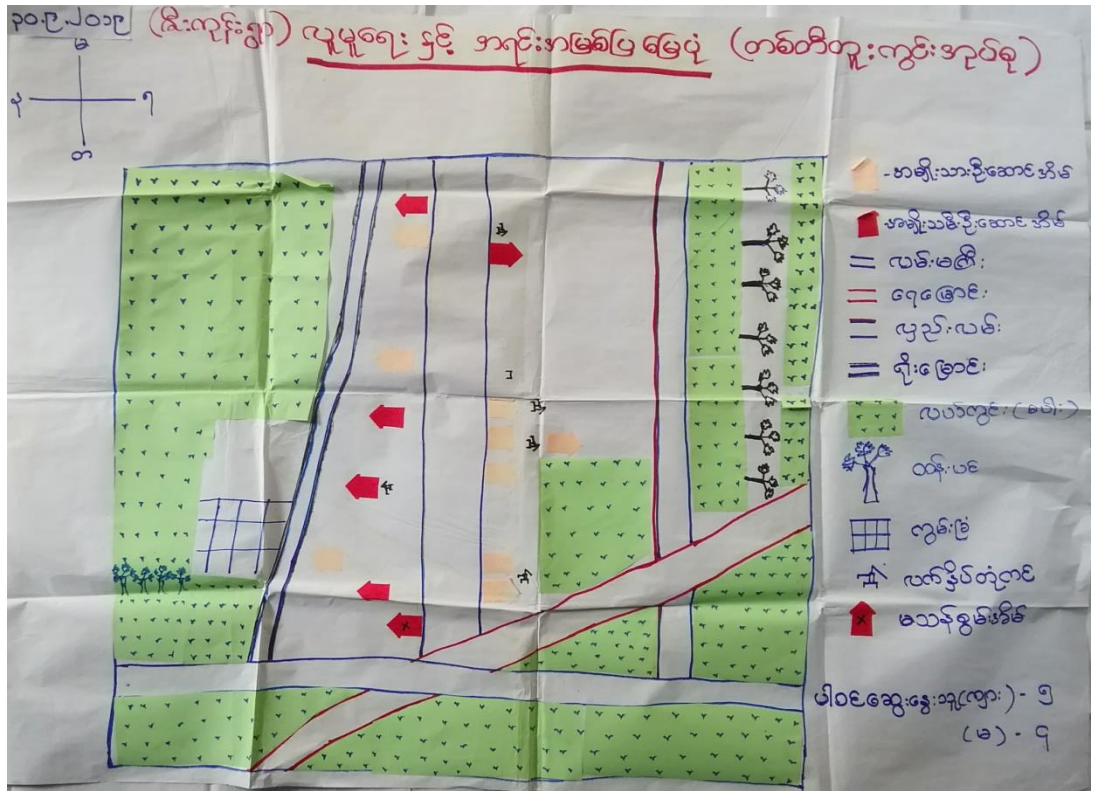 ၃၀.၉.၂၀၁၉ (ဇီးကုန်းရွာ) လူမှုရေး နှင့် အရင်းအမြစ်ပြ မြေပုံ (တစ်တီတူးကွင်းအုပ်စု)
မ
န
၅
တ
- အမျိုးသားဦးဆောင်အိမ်
အမျိုးသမီးဦးဆောင်အိမ်
လမ်းမကြီး
ရေမြောင်း
လှည်းလမ်း
ရိုးမြောင်း
လယ်ကွင်း (စပါး)
ထန်းပင်
ကွမ်းခြံ
လက်နှိပ်တုံကင်
မသန်စွမ်းအိမ်
ပါဝင်ဆွေးနွေးသူ(ကျား) - ၅
(မ) - ၎